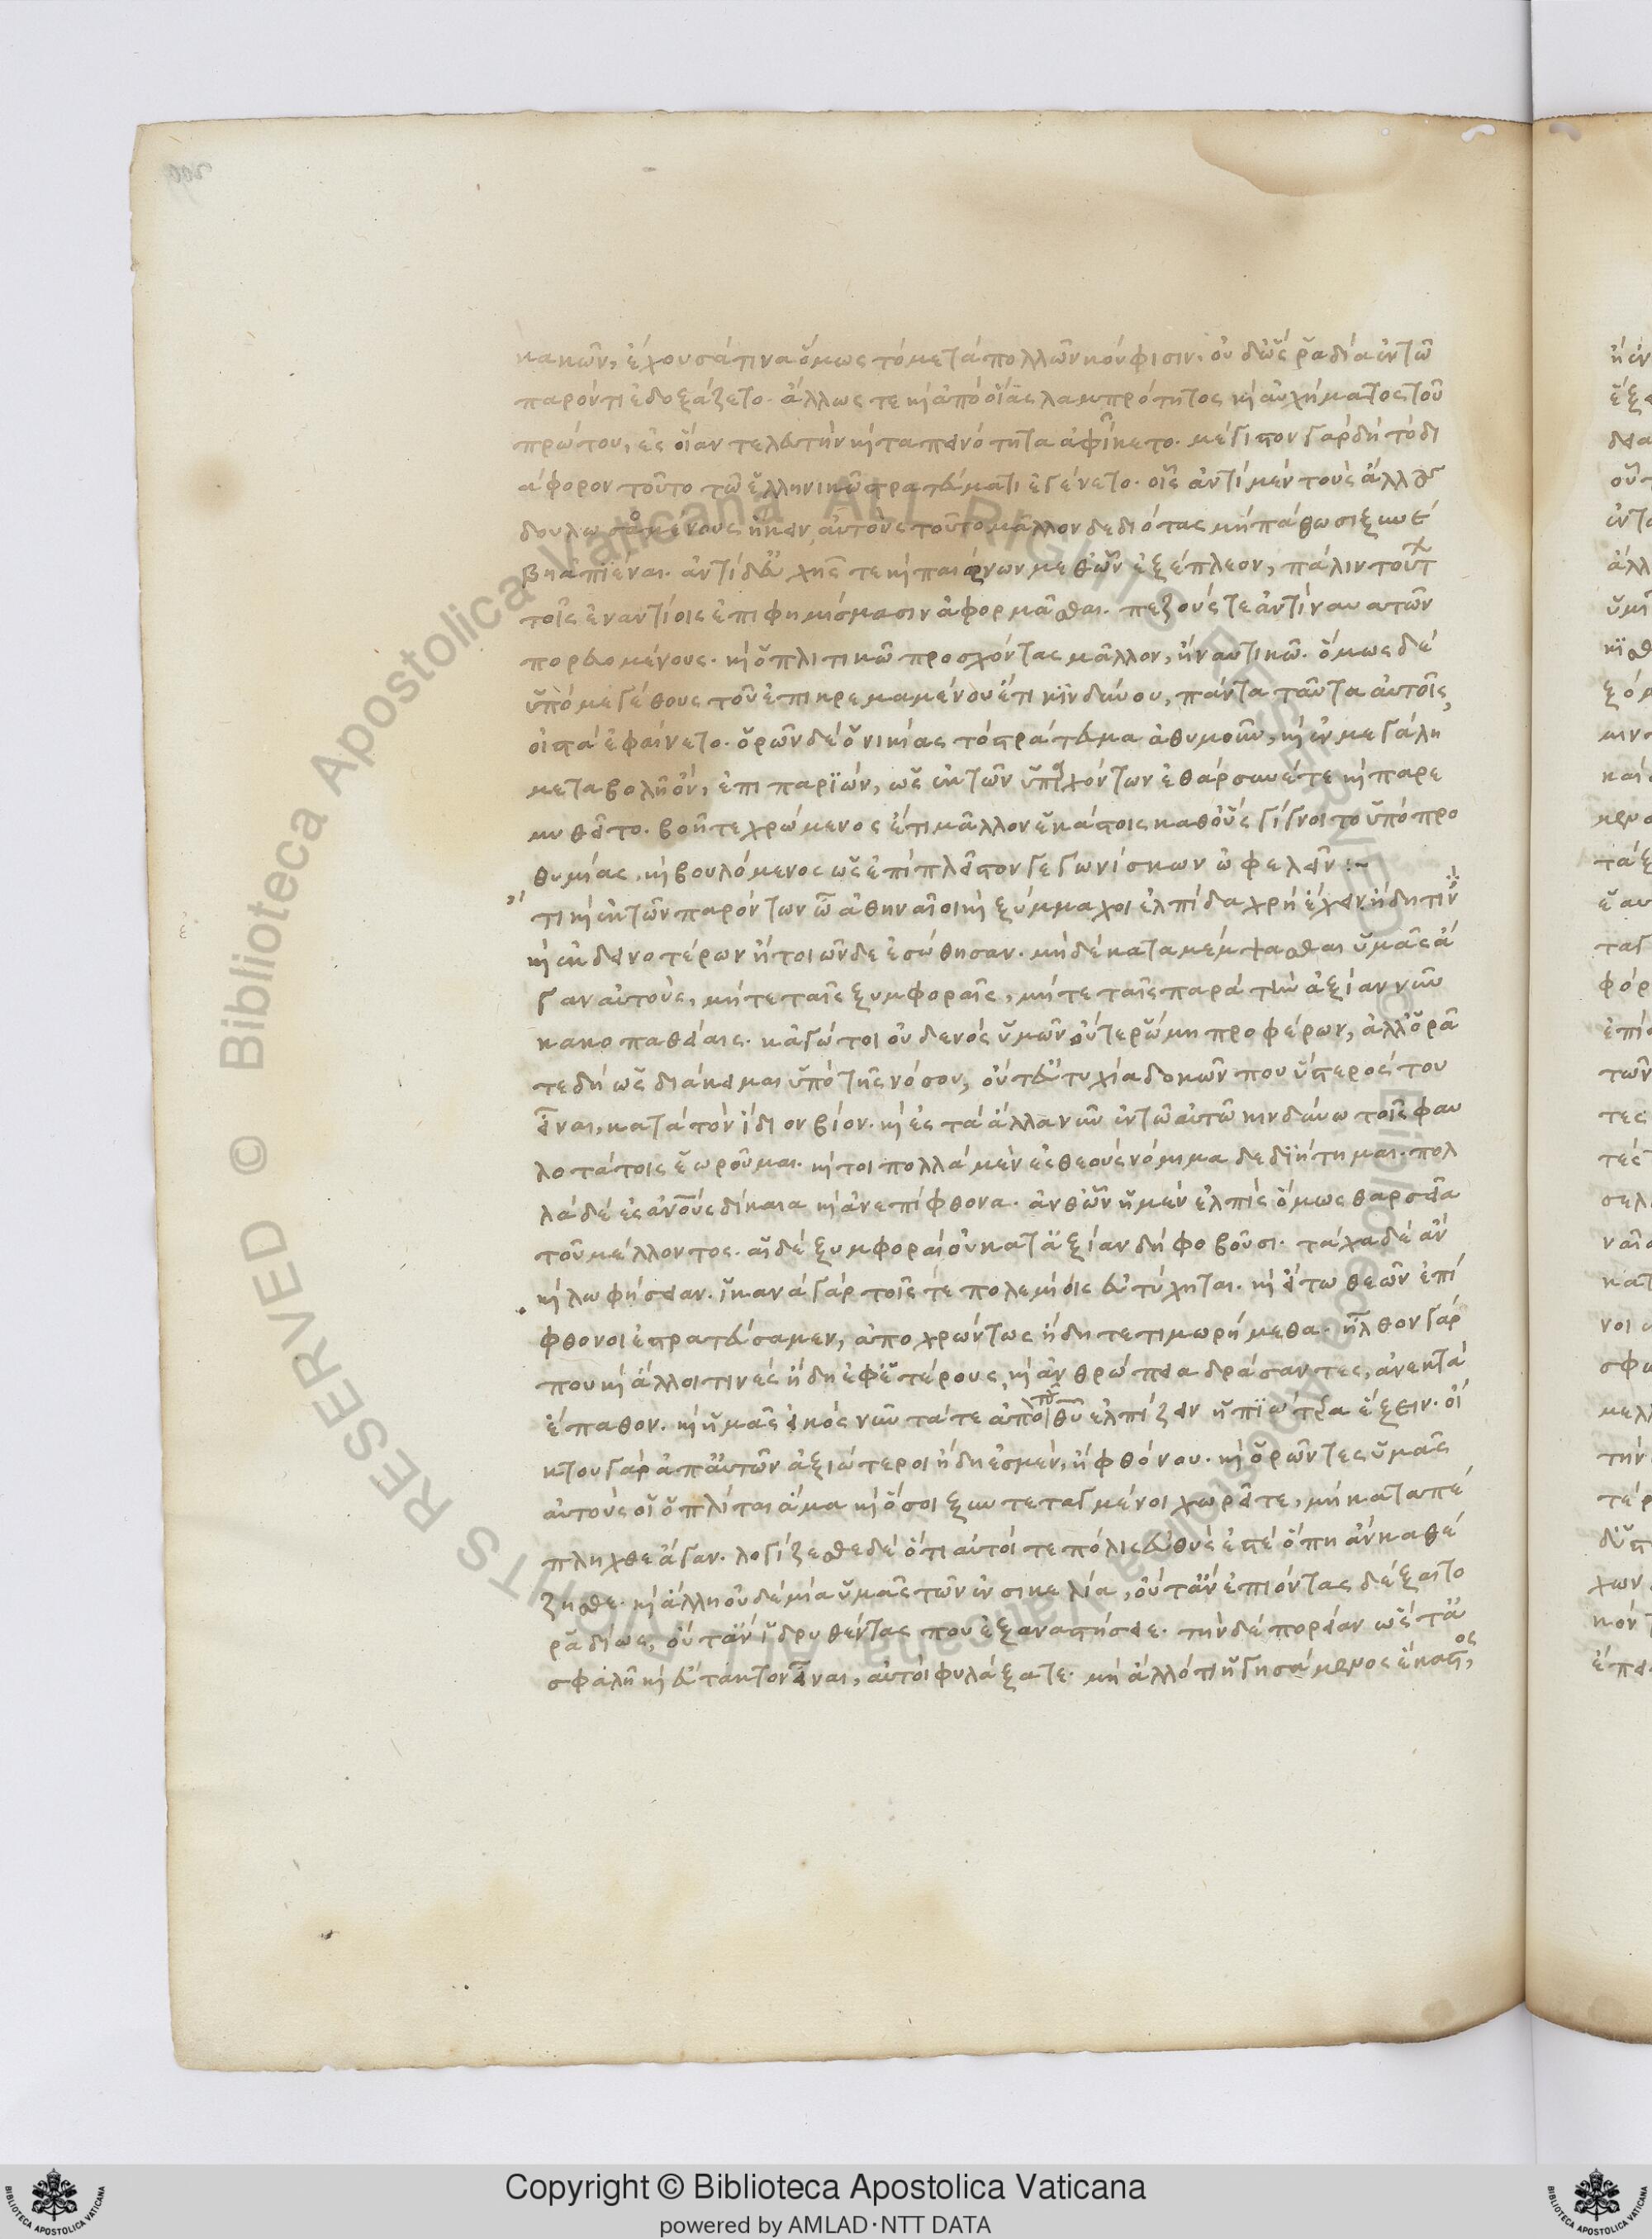 κακῶν, ἔχουσά τινα ὅμως τὸ μετὰ πολλῶν κούφισιν, οὐδ' ὣς ῥαδία ἐν τῶ
παρόντι ἐδοξάζετο. ἄλλως τε καὶ ἀπὸ οἵας λαμπρότητος καὶ αὐχήματος τοῦ
πρώτου, ἐς οἵαν τελευτὴν καὶ ταπεινότητα ἀφῖκετο. μέγιστον γὰρ δὴ τὸ δι
άφορον τοῦτο τῶ ἑλληνικῶ στρατεύματι ἐγένετο. οἷς ἀντὶ μὲν τοῦ ἄλλους
δουλωσομένους ἥκειν, αὐτοὺς τοῦτο μᾶλλον δεδιότας μὴ πάθωσι ξυνέ
βη ἀπιέναι. ἀντὶ δ' εὐχῆς τε καὶ παιάνων μεθ' ὧν ἐξέπλεον, πάλιν τούτων
τοῖς ἐναντίοις ἐπιφημίσμασιν ἀφορμᾶσθαι. πεζούς τε ἀντὶ ναυατῶν
πορευομένους. καὶ ὁπλιτικῶ προσχόντας μᾶλλον, ἢ ναυτικῶ. ὅμως δὲ
ὑπὸ μεγέθους τοῦ ἐπικρεμαμένου ἔτι κινδύνου, πάντα ταῦτα αὐτοῖς
οἰστὰ ἐφαίνετο. ὁρῶν δὲ ὁ νικίας τὸ στράτευμα ἀθυμοῦν, καὶ ἐν μεγάλη
μεταβολῆ ὄν, ἐπιπαρϊών, ὡς ἐκ τῶν ὑπαρχόντων ἐθάρσυνέ τε καὶ παρε
μυθεῖτο. βοῆ τε χρώμενος ἔτι μᾶλλον ἑκάστοις καθ' οὓς γίγνοιτο ὑπὸ προ
θυμίας, καὶ βουλόμενος ὡς ἐπὶ πλεῖστον γεγωνίσκων ὠφελεῖν :~
ἔτι καὶ ἐκ τῶν παρόντων ὦ ἀθηναῖοι καὶ ξύμμαχοι ἐλπίδα χρὴ ἔχειν ἤδη τινὲς
καὶ ἐκ δεινοτέρων ἢ τοιῶνδε ἐσώθησαν. μὴ δὲ καταμέμψασθαι ὑμᾶς ἄ
γαν αὐτούς, μήτε ταῖς ξυμφοραῖς, μήτε ταῖς παρὰ τὴν ἀξίαν νῦν
κακοπαθείαις. κἀγώ τοι οὐδενὸς ὑμῶν οὔτε ῥώμη προφέρων, ἀλλ' ὁρᾶ
τε δὴ ὡς διάκειμαι ὑπὸ τῆς νόσου, οὔτ' εὐτυχία δοκῶν που ὕστερός του
εἶναι, κατὰ τὸν ἴδιον βίον. καὶ ἐς τὰ ἄλλα νῦν ἐν τῶ αὐτῶ κινδύνω τοῖς φαυ
λοτάτοις ἑωροῦμαι. καίτοι πολλὰ μὲν ἐς θεοὺς νόμιμα δεδϊήτημαι. πολ
λὰ δὲ ἐς ἀνους δίκαια καὶ ἀνεπίφθονα. ἀνθ' ὧν ἡ μὲν ἐλπὶς ὅμως θαρσεῖα
τοῦ μέλλοντος. αἱ δὲ ξυμφοραὶ οὐ κατ' ἀξίαν δὴ φοβοῦσι. τάχα δὲ ἂν
καὶ λωφήσειαν. ἱκανὰ γὰρ τοῖς τε πολεμίοις εὐτύχηται. καὶ εἴ τω θεῶν ἐπί
φθονοι ἐστρατεύσαμεν, ἀποχρώντως ἤδη τετιμωρήμεθα. ἦλθον γάρ
που καὶ ἄλλοι τινὲς ἤδη ἐφ' ἑτέρους, καὶ ἀνθρώπεια δράσαντες, ἀνεκτὰ
ἔπαθον. καὶ ἡμᾶς εἰκὸς νῦν τά τε ἀπὸ τοῦ θυ ἐλπίζειν ἠπιώτερα ἕξειν. οἴ
κτου γὰρ ἀπ' αὐτῶν ἀξιώτεροι ἤδη ἐσμέν, ἢ φθόνου. καὶ ὁρῶντες ὑμᾶς
αὐτοὺς οἷ ὁπλῖται ἅμα καὶ ὅσοι ξυντεταγμένοι χωρεῖτε, μὴ καταπέ
πληχθε ἄγαν. λογίζεσθε δὲ ὅτι αὐτοί τε πόλις εὐθύς ἐστὲ ὅπη ἂν καθέ
ζησθε. καὶ ἄλλη οὐδὲ μία ὑμᾶς τῶν ἐν σικελία, οὔτ' ἂν ἐπιόντας δέξαιτο
ῥαδίως, οὔτ' ἂν ἱδρυθέντας που ἐξαναστήσειε. τὴν δὲ πορείαν ὥστ' ἀ
σφαλῆ καὶ εὔτακτον εἶναι, αὐτοὶ φυλάξατε. μὴ ἄλλό τι ἡγησάμενος ἕκαστος,
© Biblioteca Apostolica Vaticana ALL RIGHTS RESERVED
Copyright © Biblioteca Apostolica Vaticana
powered by AMLAD·NTT DATA